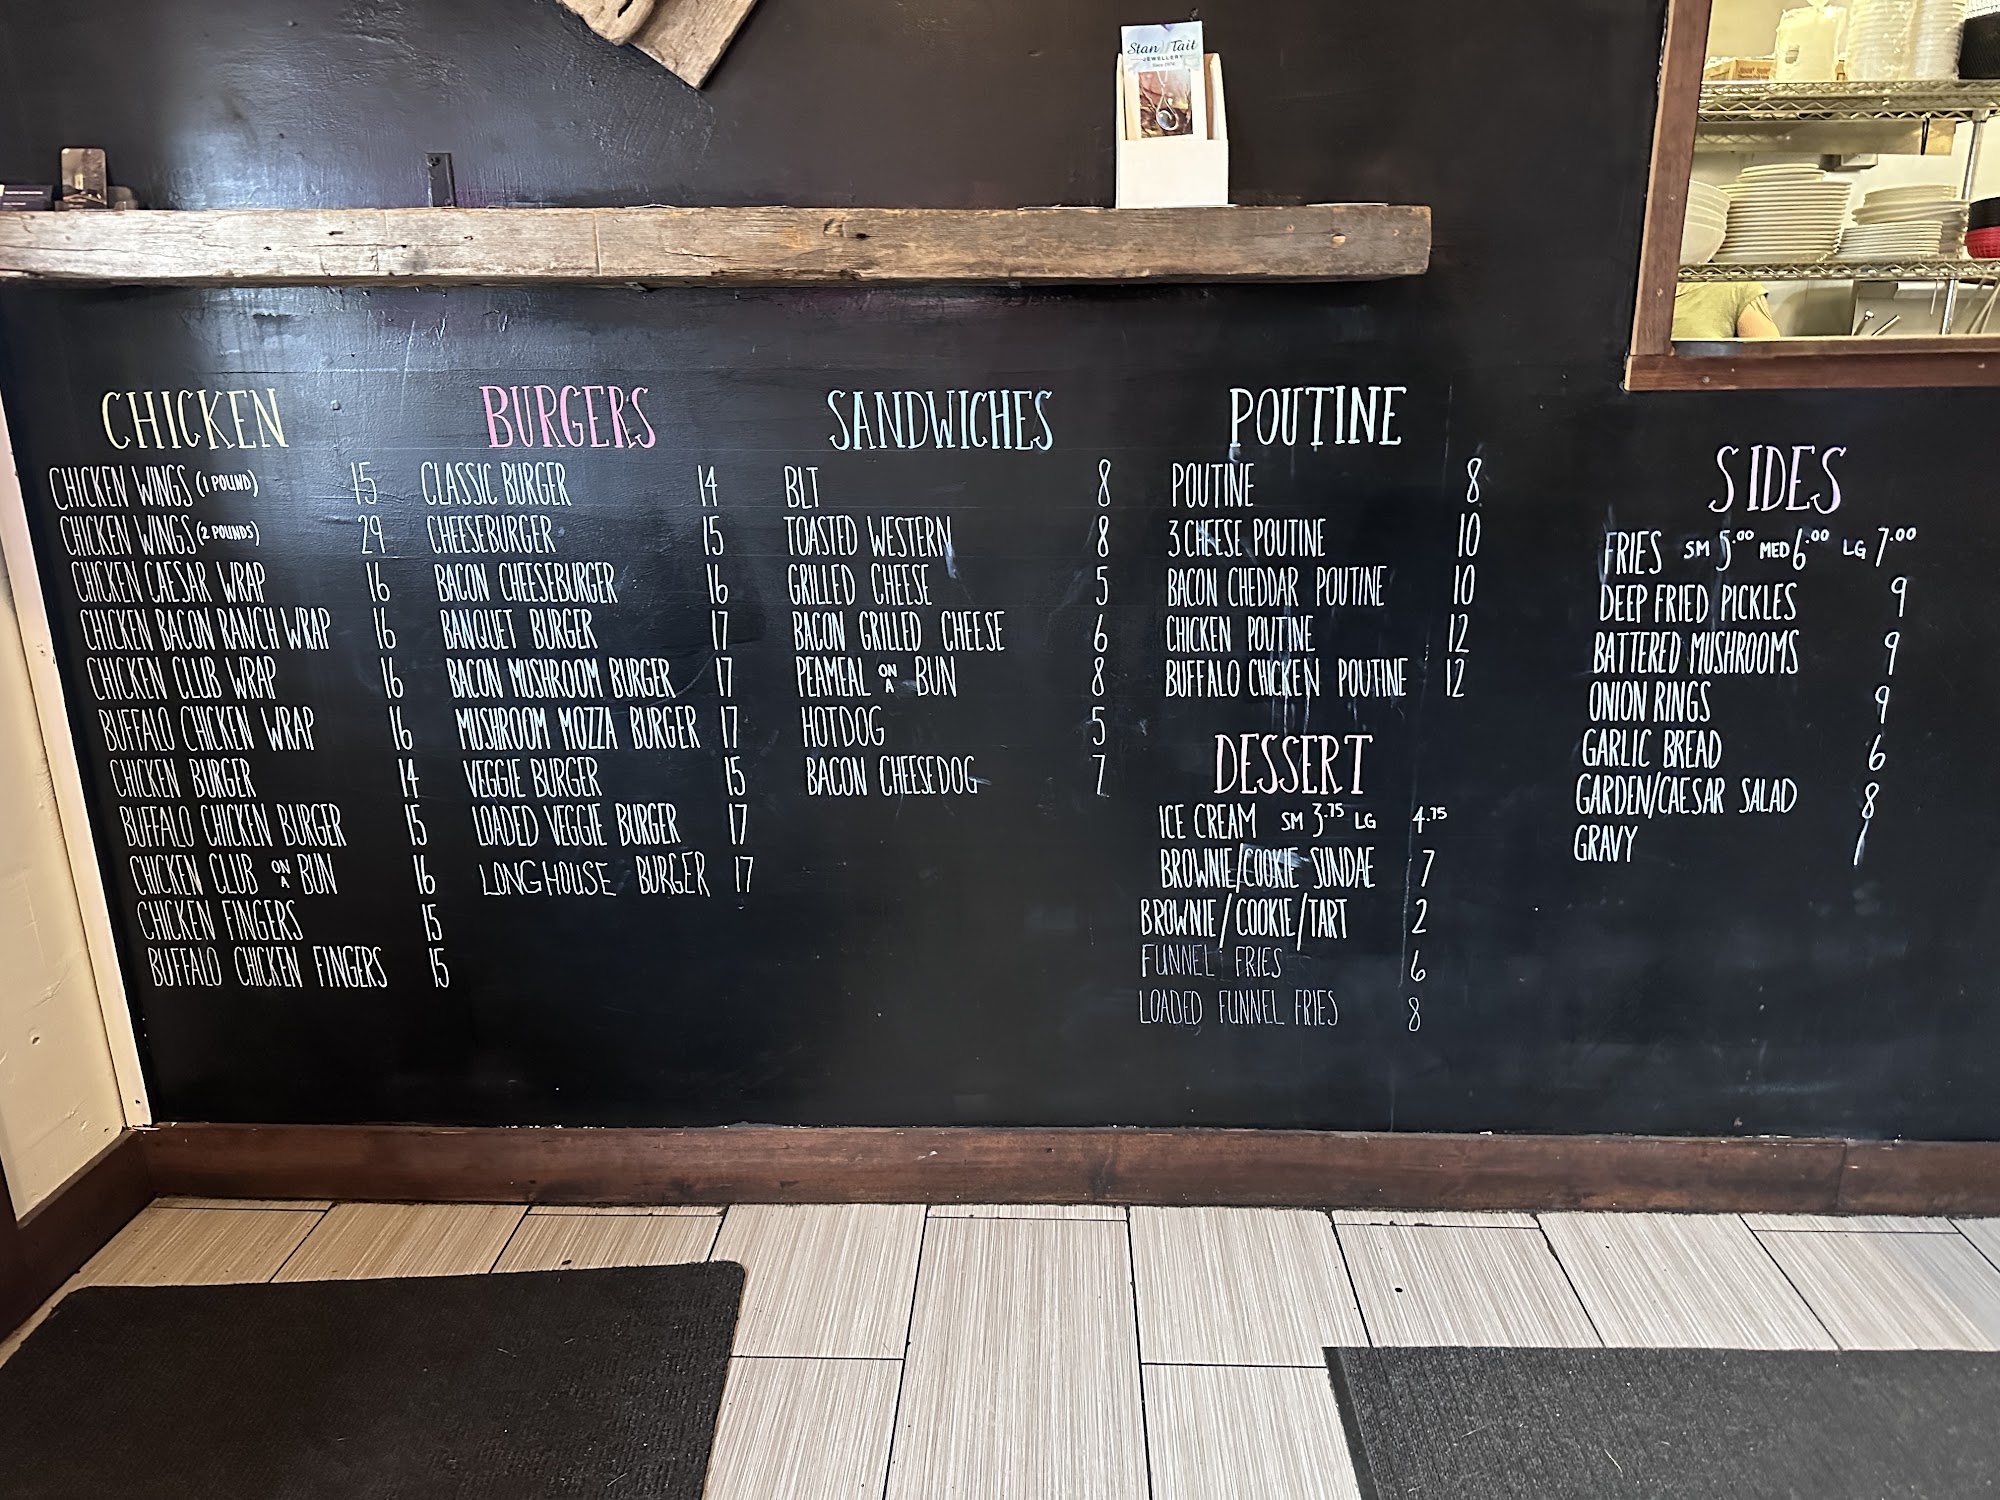 Stan Tait
JEWELLERY
CHICKEN
CHICKEN WINGS (1 POUND) 15
CHICKEN WINGS (2 POUNDS) 29
CHICKEN CAESAR WRAP 16
CHICKEN BACON RANCH WRAP 16
CHICKEN CLUB WRAP 16
BUFFALO CHICKEN WRAP 16
CHICKEN BURGER 14
BUFFALO CHICKEN BURGER 15
CHICKEN CLUB ON A BUN 16
CHICKEN FINGERS 15
BUFFALO CHICKEN FINGERS 15
BURGERS
CLASSIC BURGER 14
CHEESEBURGER 15
BACON CHEESEBURGER 16
BANQUET BURGER 17
BACON MUSHROOM BURGER 17
MUSHROOM MOZZA BURGER 17
VEGGIE BURGER 15
LOADED VEGGIE BURGER 17
LONGHOUSE BURGER 17
SANDWICHES
BLT 8
TOASTED WESTERN 8
GRILLED CHEESE 5
BACON GRILLED CHEESE 6
PEAMEAL ON A BUN 8
HOTDOG 5
BACON CHEESEDOG 7
POUTINE
POUTINE 8
3 CHEESE POUTINE 10
BACON CHEDDAR POUTINE 10
CHICKEN POUTINE 12
BUFFALO CHICKEN POUTINE 12
DESSERT
ICE CREAM SM 3.75 LG 4.75
BROWNIE/COOKIE SUNDAE 7
BROWNIE/COOKIE/TART 2
FUNNEL FRIES 6
LOADED FUNNEL FRIES 8
SIDES
FRIES SM 5.00 MED 6.00 LG 7.00
DEEP FRIED PICKLES 9
BATTERED MUSHROOMS 9
ONION RINGS 9
GARLIC BREAD 6
GARDEN/CAESAR SALAD 8
GRAVY 1